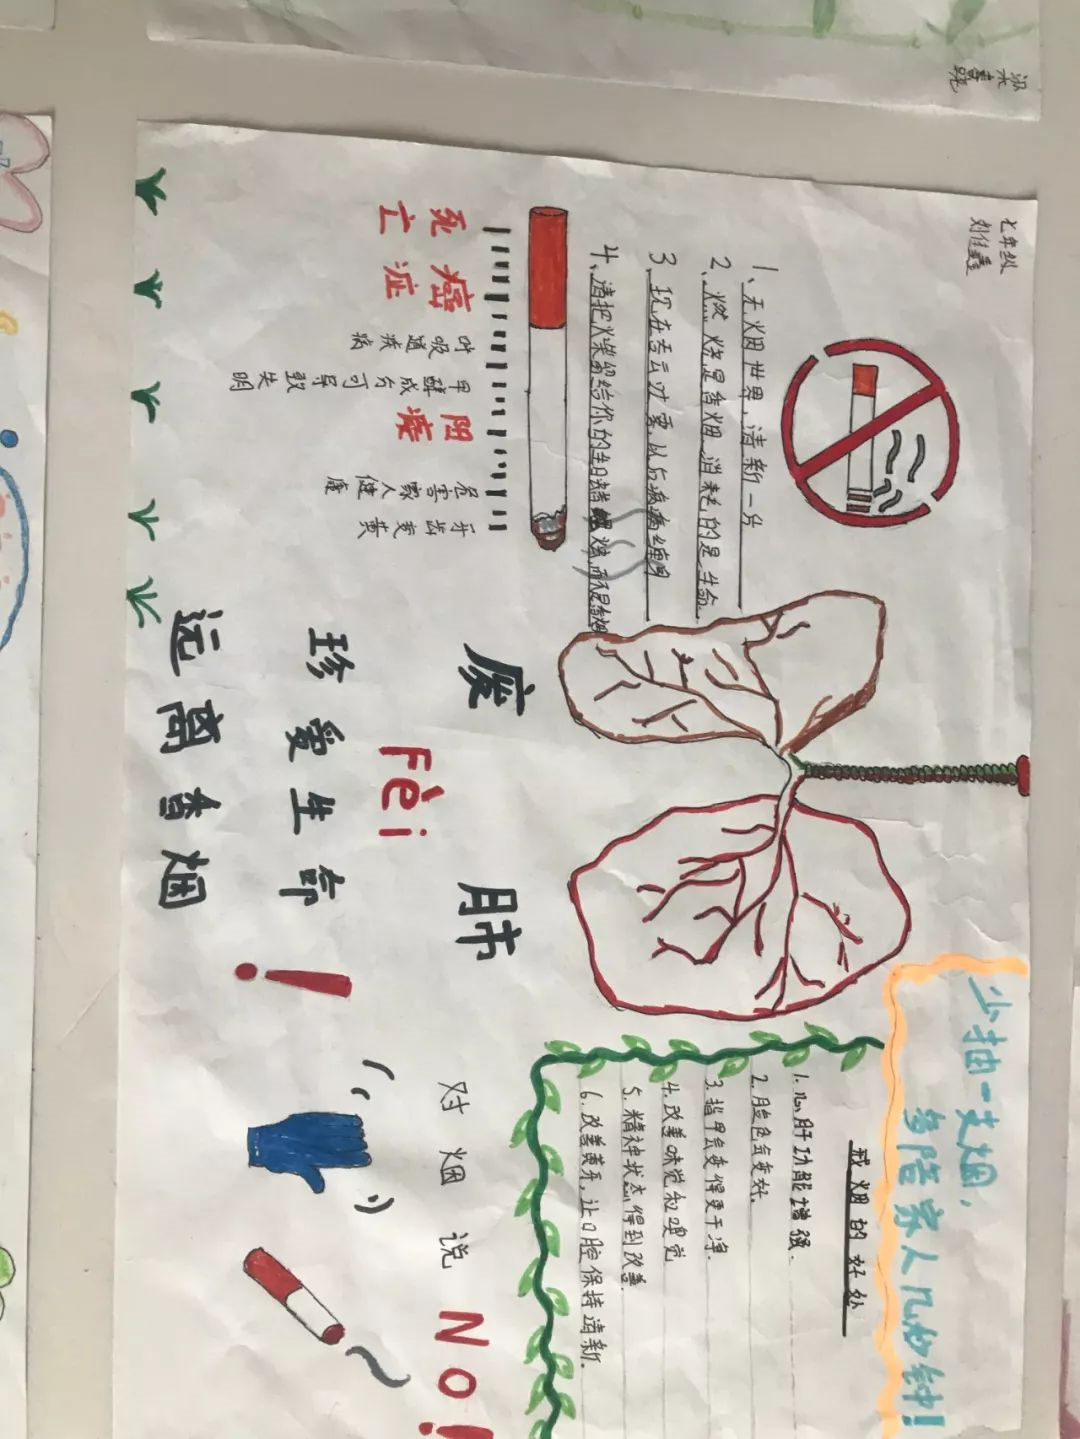 七年级
刘佳鑫
1、无烟世界,清新一片
2、燃烧是香烟 消耗的是生命.
3、现在丢云吐雾,以后疾病缠身
4、请把火柴留给你的生日蜡烛,而不是香烟
死亡
癌症
呼吸道疾病
早醇成分可导致失明
阳痿
危害家人健康
牙齿变黄
废 肺
Fèi
珍爱生命
远离香烟
!
少抽一支烟,
多陪家人几分钟!
戒烟的好处
1.心肝功能增强.
2.脸色会变好.
3.指甲会变得更干净.
4.改善味觉和嗅觉
5.精神状态得到改善.
6.改善黄牙,让口腔保持清新.
对烟说 No!